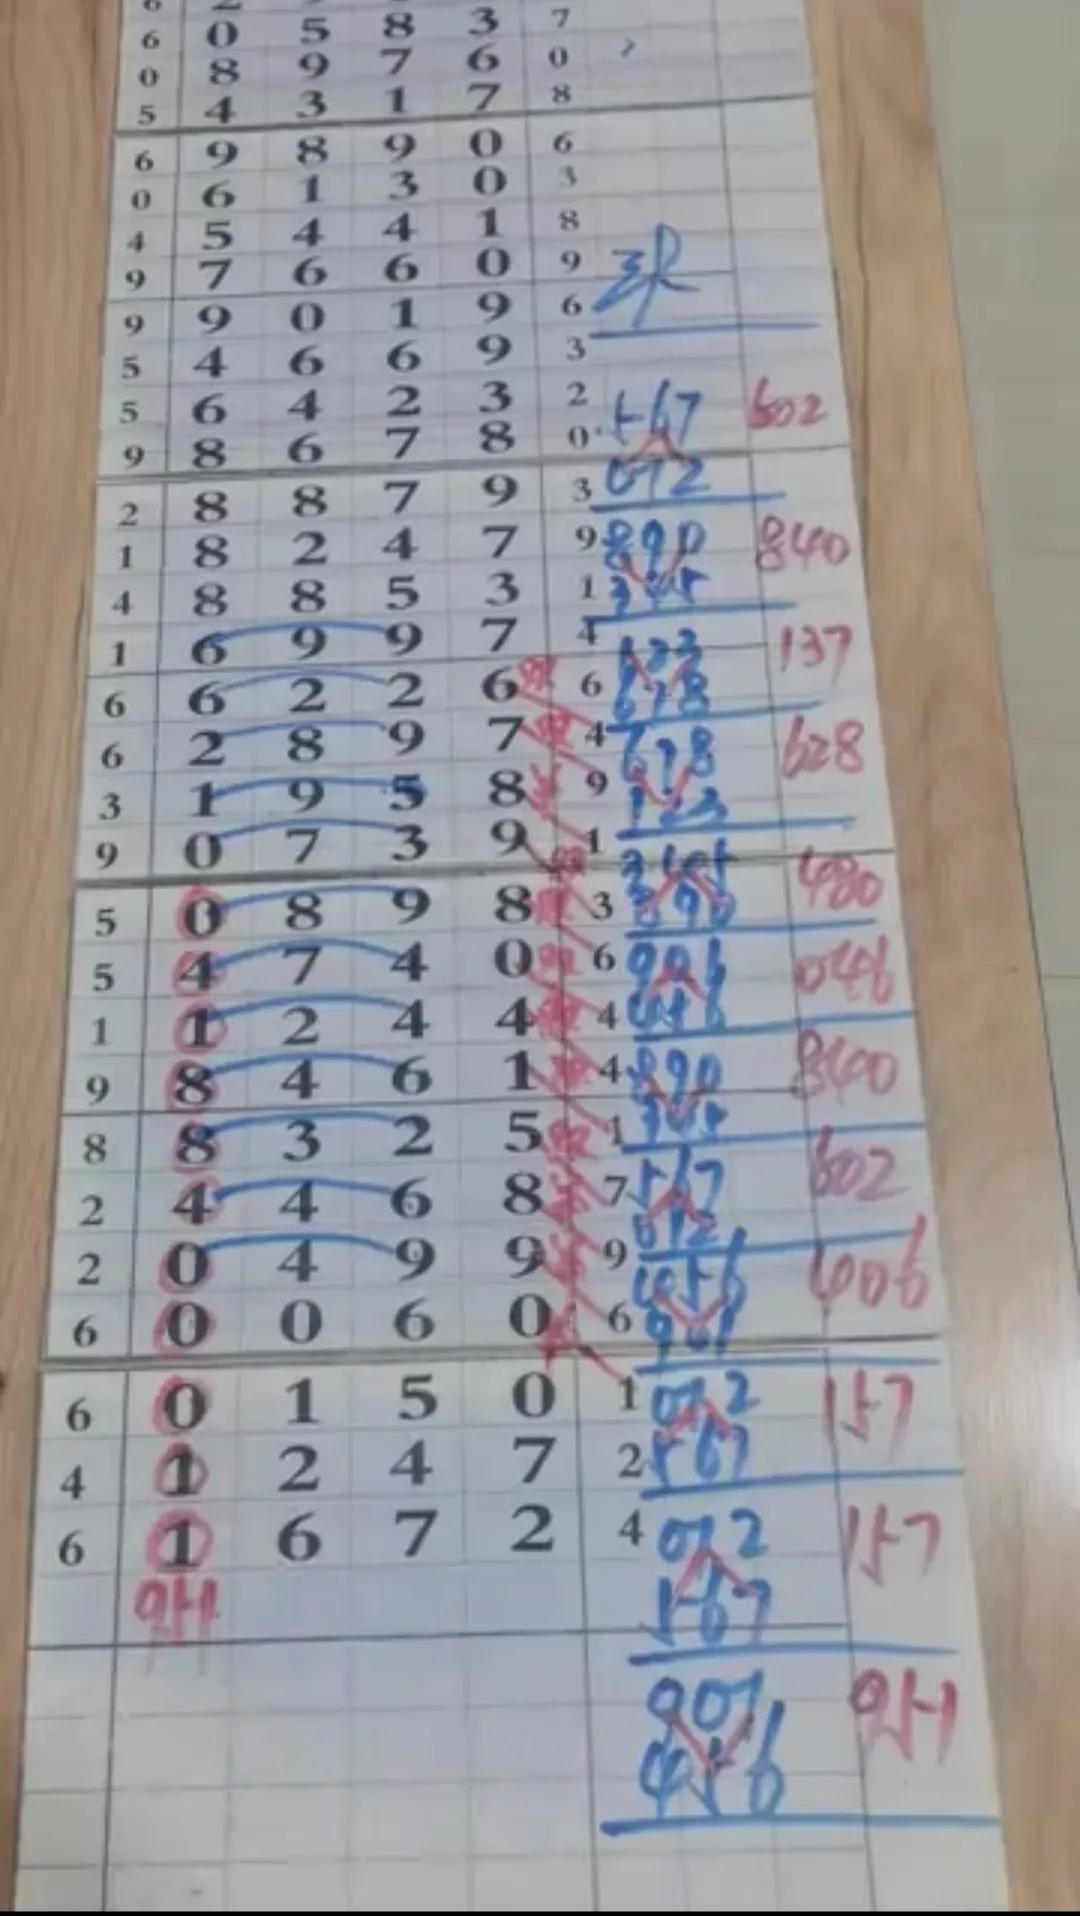 6 0 5 8 3 7
0 8 9 7 6 0
5 4 3 1 7 8
6 9 8 9 0 6
0 6 1 3 0 3
4 5 4 4 1 8
9 7 6 6 0 9
9 9 0 1 9 6
5 4 6 6 9 3
5 6 4 2 3 2 567 602
9 8 6 7 8 0
2 8 8 7 9 3 012
1 8 2 4 7 9 890 840
4 8 8 5 3 1 345
1 6 9 9 7 4 123 137
6 6 2 2 6 6 678
6 2 8 9 7 4 678 628
3 1 9 5 8 9 123
9 0 7 3 9 1 345 480
5 0 8 9 8 3 890
5 4 7 4 0 6 901 046
1 1 2 4 4 4 456
9 8 4 6 1 4 890 840
8 8 3 2 5 1 345
2 4 4 6 8 7 567 602
2 0 4 9 9 9 012
6 0 0 6 0 6 456 406
901
6 0 1 5 0 1 012 157
4 1 2 4 7 2 567
6 1 6 7 2 4 012 157
951 567
901 951
456